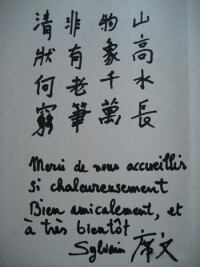 山高水長
物象千萬
非有老筆
清狀何窮
Merci de nous accueillir
si chaleureusement
Bien amicalement, et
à très bientôt
Sylvain 席文